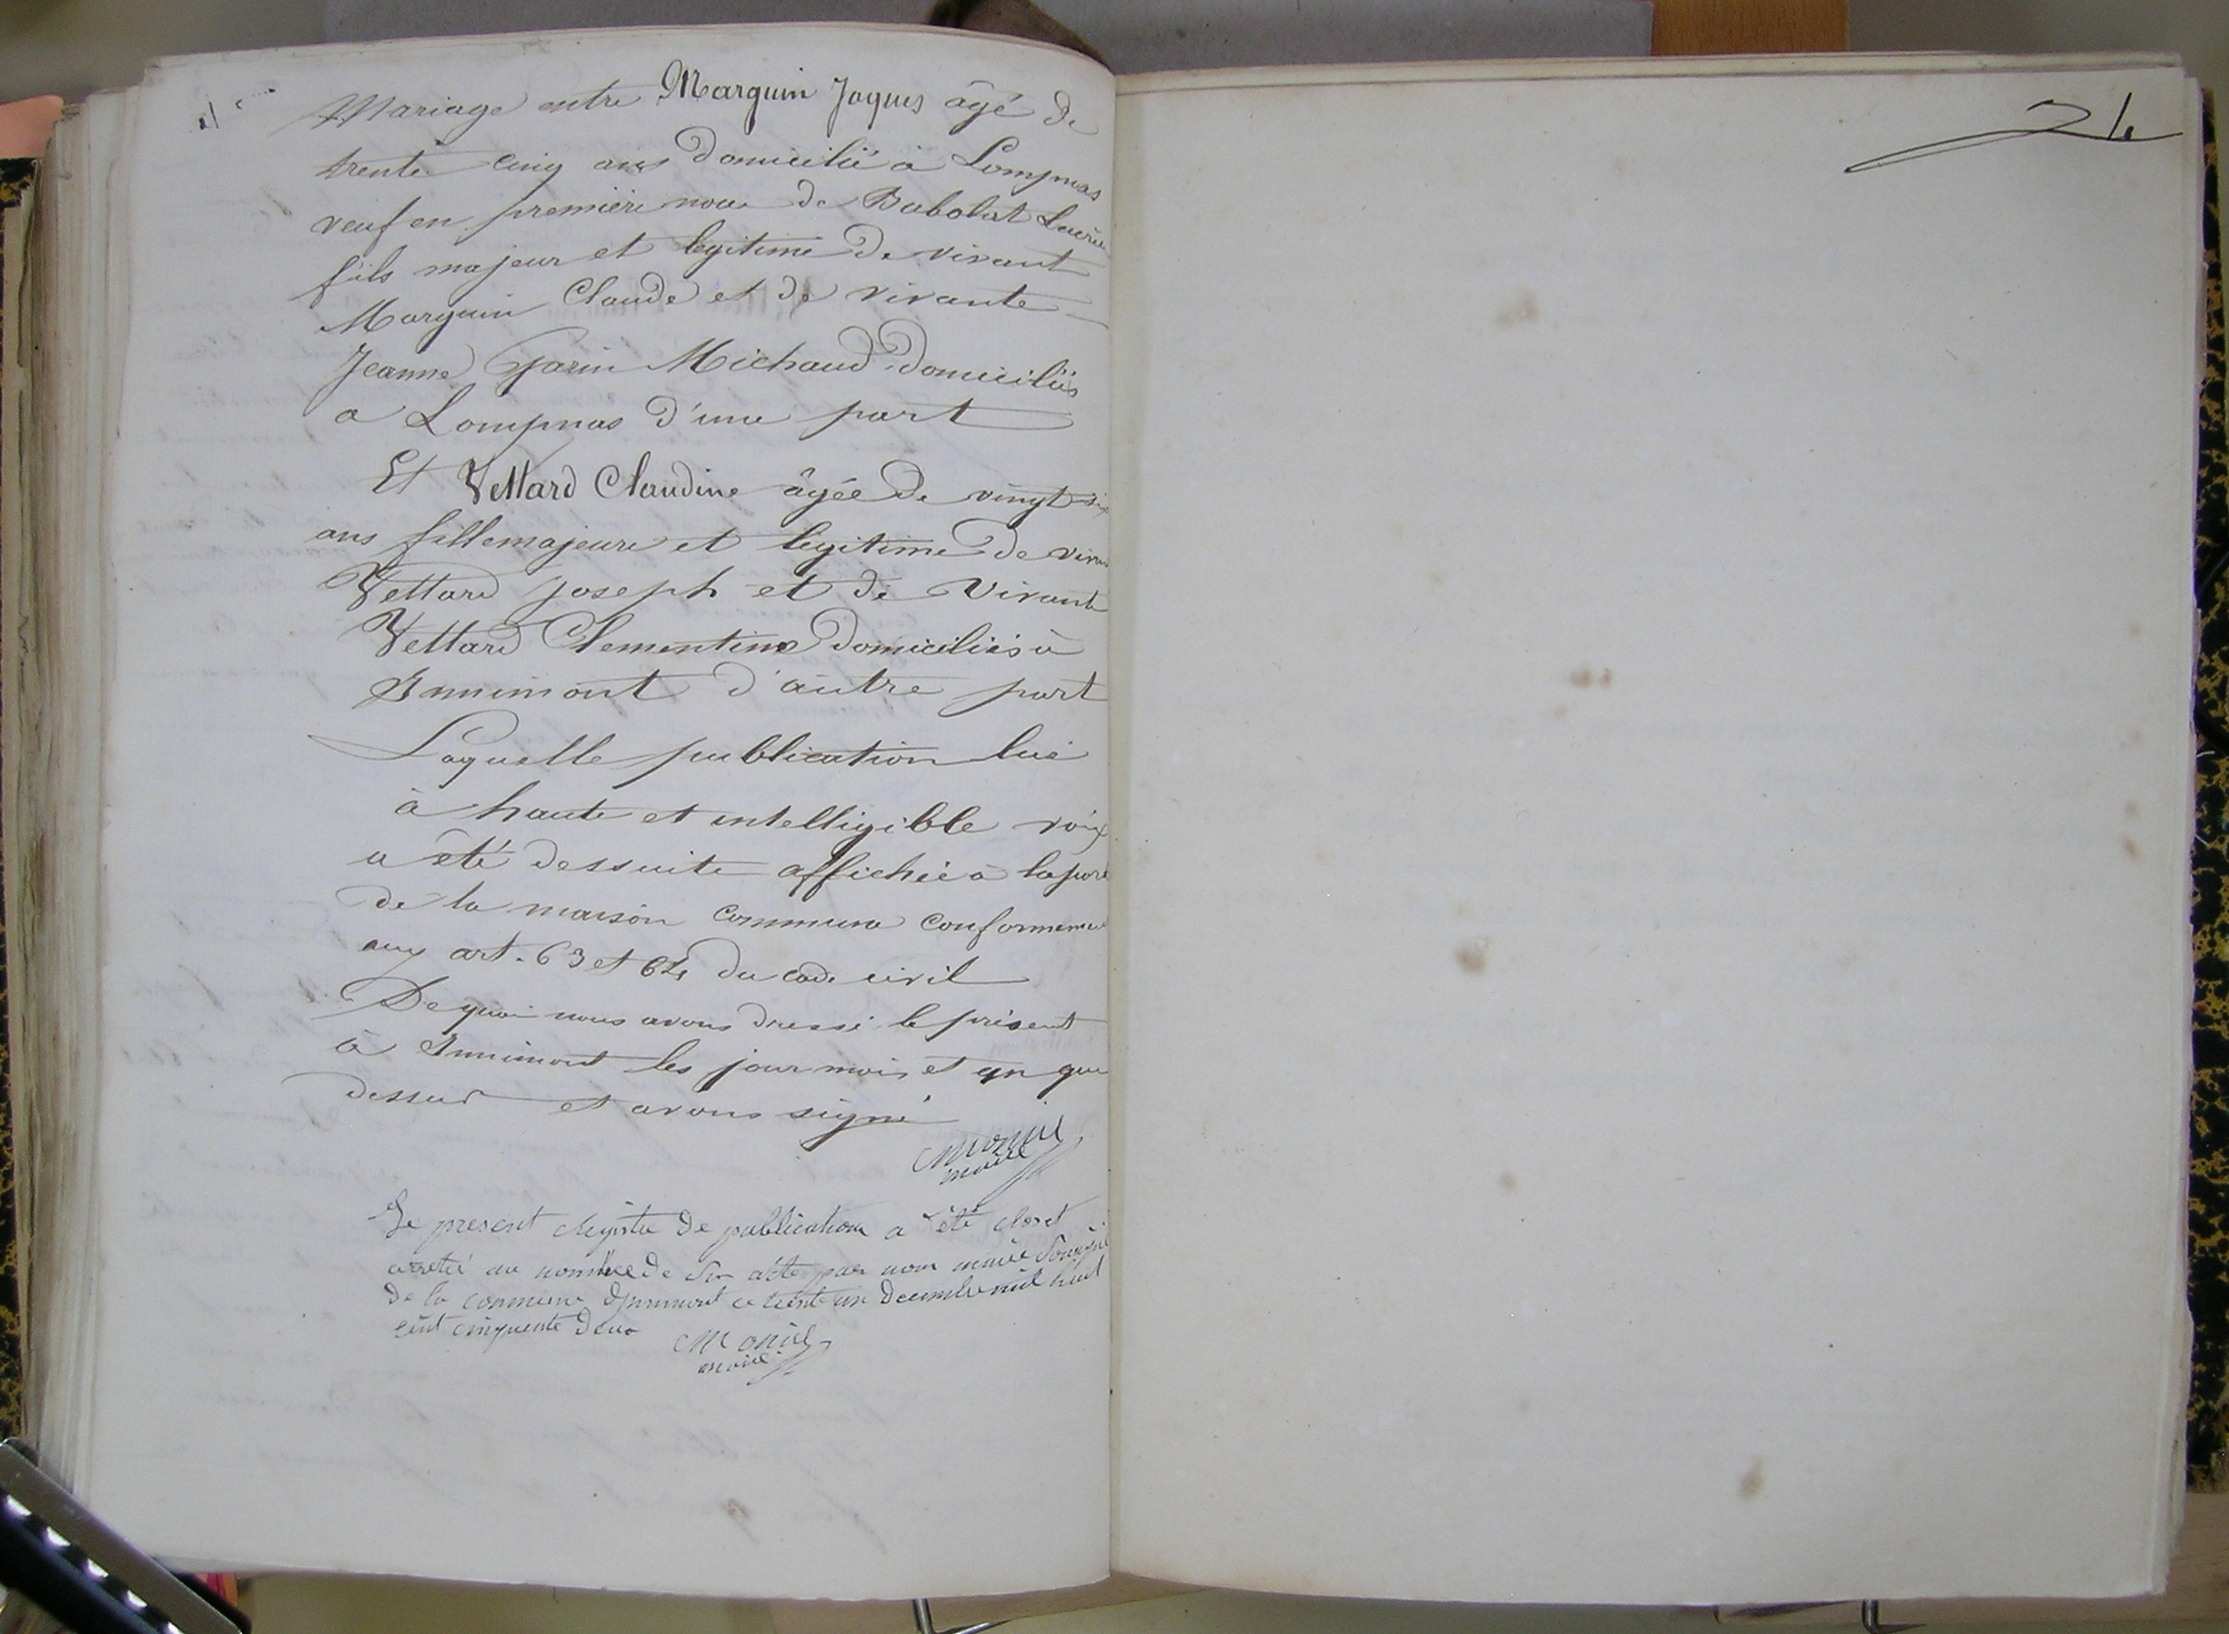 Mariage entre Marguin Jaques âgé de
trente cinq ans domicilié à Lompnas
veuf en première noce de Babolat
fils majeur et legitime de vivant
Marguin Claude et de vivante
Jeanne Garin Michaud domiciliés
a Lompnas d'une part
Et Vettard Claudine âgée de vingt six
ans fille majeure et légitime de vivant
Vettard Joseph et de vivante
Vettard Clementine domiciliés à
Innimont d'autre part
Laquelle publication lue
à haute et intelligible voix
a été dessuite affichée à la porte
de la maison commune conformement
aux art. 63 et 64 du code civil
De quoi nous avons dressé le présent
à Innimont les jour mois et an que
dessus et avons signé
Moniel
maire
Le present registre de publication a été clos et
arreté au nombre de six actes par nous maire soussigné
de la commune d'Innimont ce trente un decembre mil huit
cent cinquante deux
Moniel
maire
24